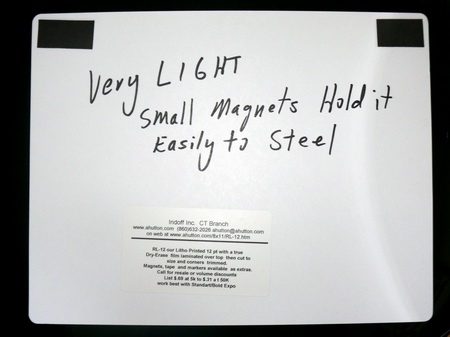 Very LIGHT
Small Magnets Hold it
Easily to Steel
Indoff Inc. CT Branch
www.ahutton.com (860)632-2026 ahutton@ahutton.com
on web at www.ahutton.com/8x11/RL-12.htm
RL-12 our Litho Printed 12 pt with a true
Dry-Erase film laminated over top then cut to
size and corners trimmed.
Magnets, tape and markers available as extras.
Call for resale or volume discounts
List $.69 at 5k to $.31 a t 50K
work best with Standart/Bold Expo